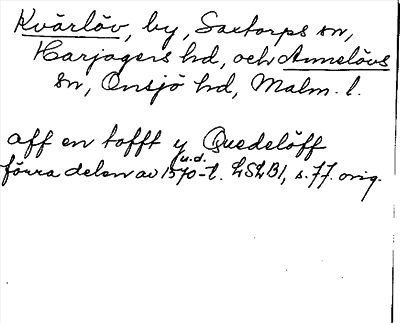 Kvärlöv, by, Saxtorps sn,
Harjagers hd, och Annelövs
sn, Onsjö hd, Malm. l.
aff en tofft y Quedelöff
u.d.
förra delen av 1570-t. LSLB1, s. 77. orig.